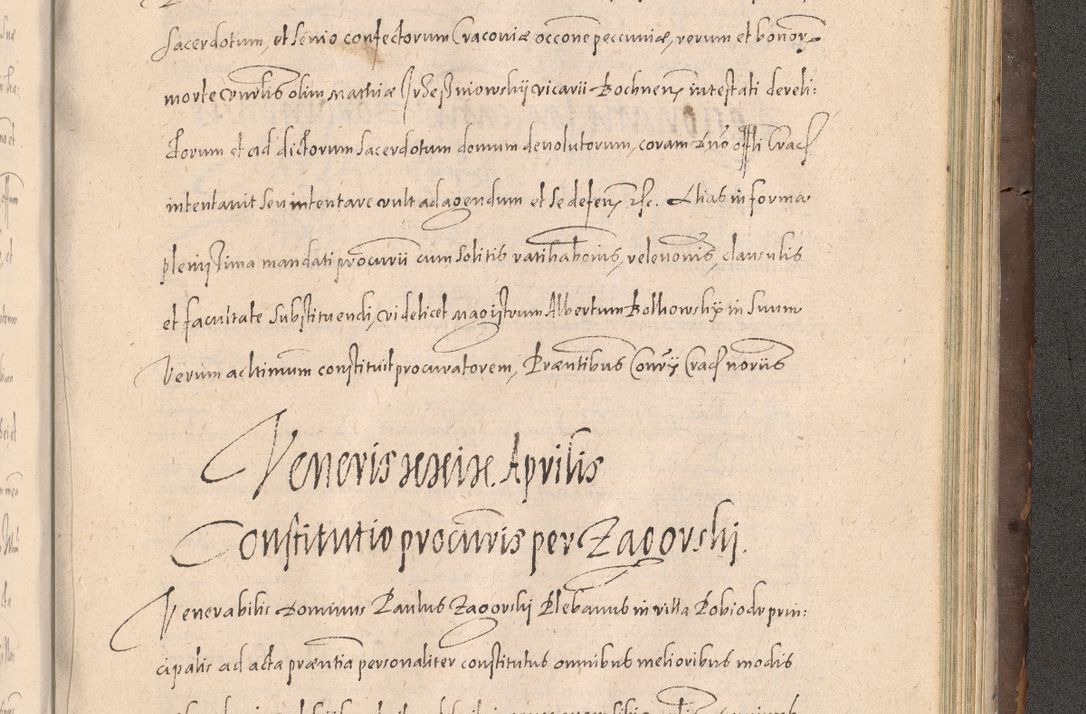 Sacerdotum, et senio confectorum Cracoviæ occõne peccuniæ, rerum et bonor
morte vnrlis olim Mathiæ vicarii Bochnen intestati dereli:
ctorum et ad dictorum Sacerdotum domum devolutorum, coram Rndo offli Crac
intentavit seu intentare vult ad agendum et se defen etc. Alias in forma
plenissima mandati procurii cum solitis ratihabonis, relevonis, clausulis
et facultate substituendi, videlicet Magistrum Albertum in suum
Verum ac ltimum constituit procuratorem, Præntibus Conry Crac noriis
Veneris xxix. Aprilis
Constitutio procuris per Zagorskj.
Venerabilis Dominus Paulus Zagorskij Plebanus in villa Pobiedr prin:
cipalis ad acta præntia personaliter constitutus omnibus melioribus modis